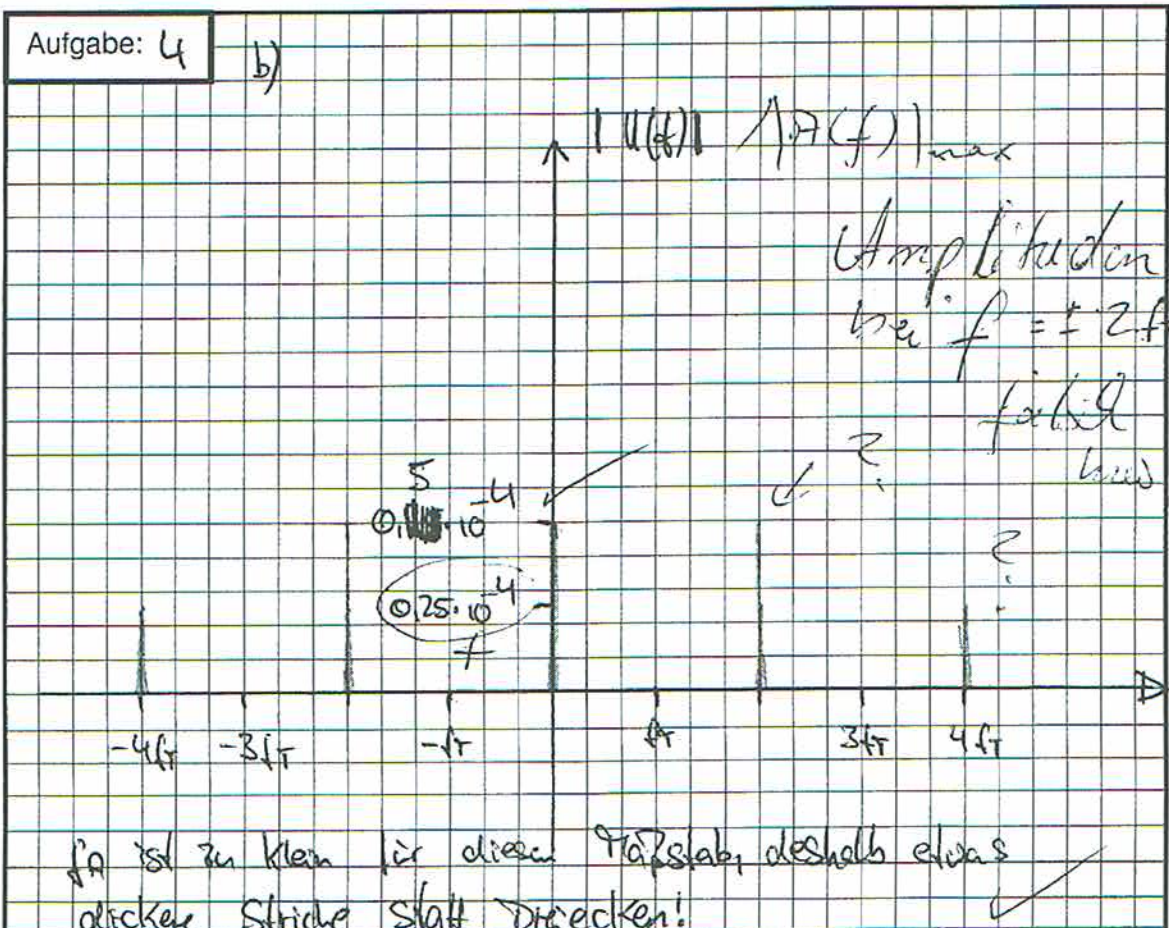 Aufgabe: 4
b)
|U(f)| / |A(f)|max
Amplituden
bei f = ± 2f
falsch
5
0, · 10^-4
?
?
0,25 · 10^-4
f
-4fT -3fT -fT fT 3fT 4fT
fA ist zu klein für diesen Maßstab, deshalb etwas
dickere Striche statt Dreiecken!